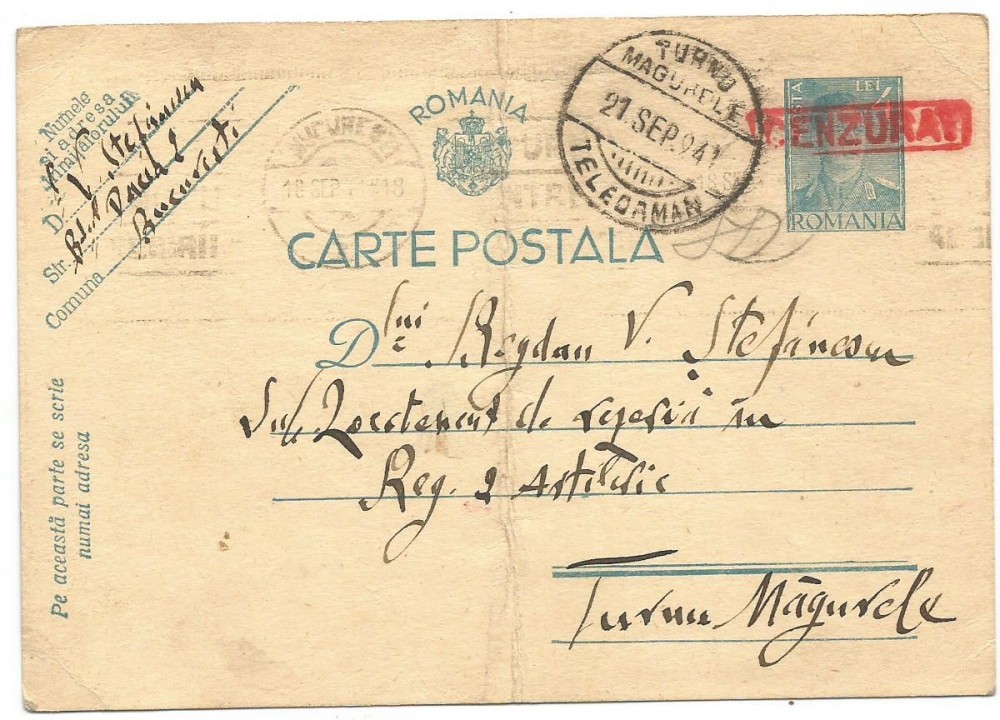 Numele
și adresa
trimițătorului
D. V. Ștefănescu
Str. B-d. David 2
Comuna București
ROMANIA
BUCUREȘTI
18 SEP
TURNU
MAGURELE
21 SEP. 941
TELEORMAN
POSTA LEI
CENZURAT
ROMANIA
CARTE POSTALA
Dlui Bogdan V. Ștefănescu
Sub. Locotenent de rezervă în
Reg. 2 Artilerie
Turnu Măgurele
Pe această parte se scrie
numai adresa